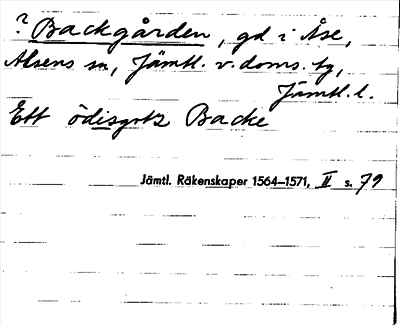 ? Backgården, gd i Åse,
Alsens sn, Jämtl. v. doms. tg,
Jämtl. l.
Ett ödisgotz Backe
Jämtl. Räkenskaper 1564–1571, II s. 79